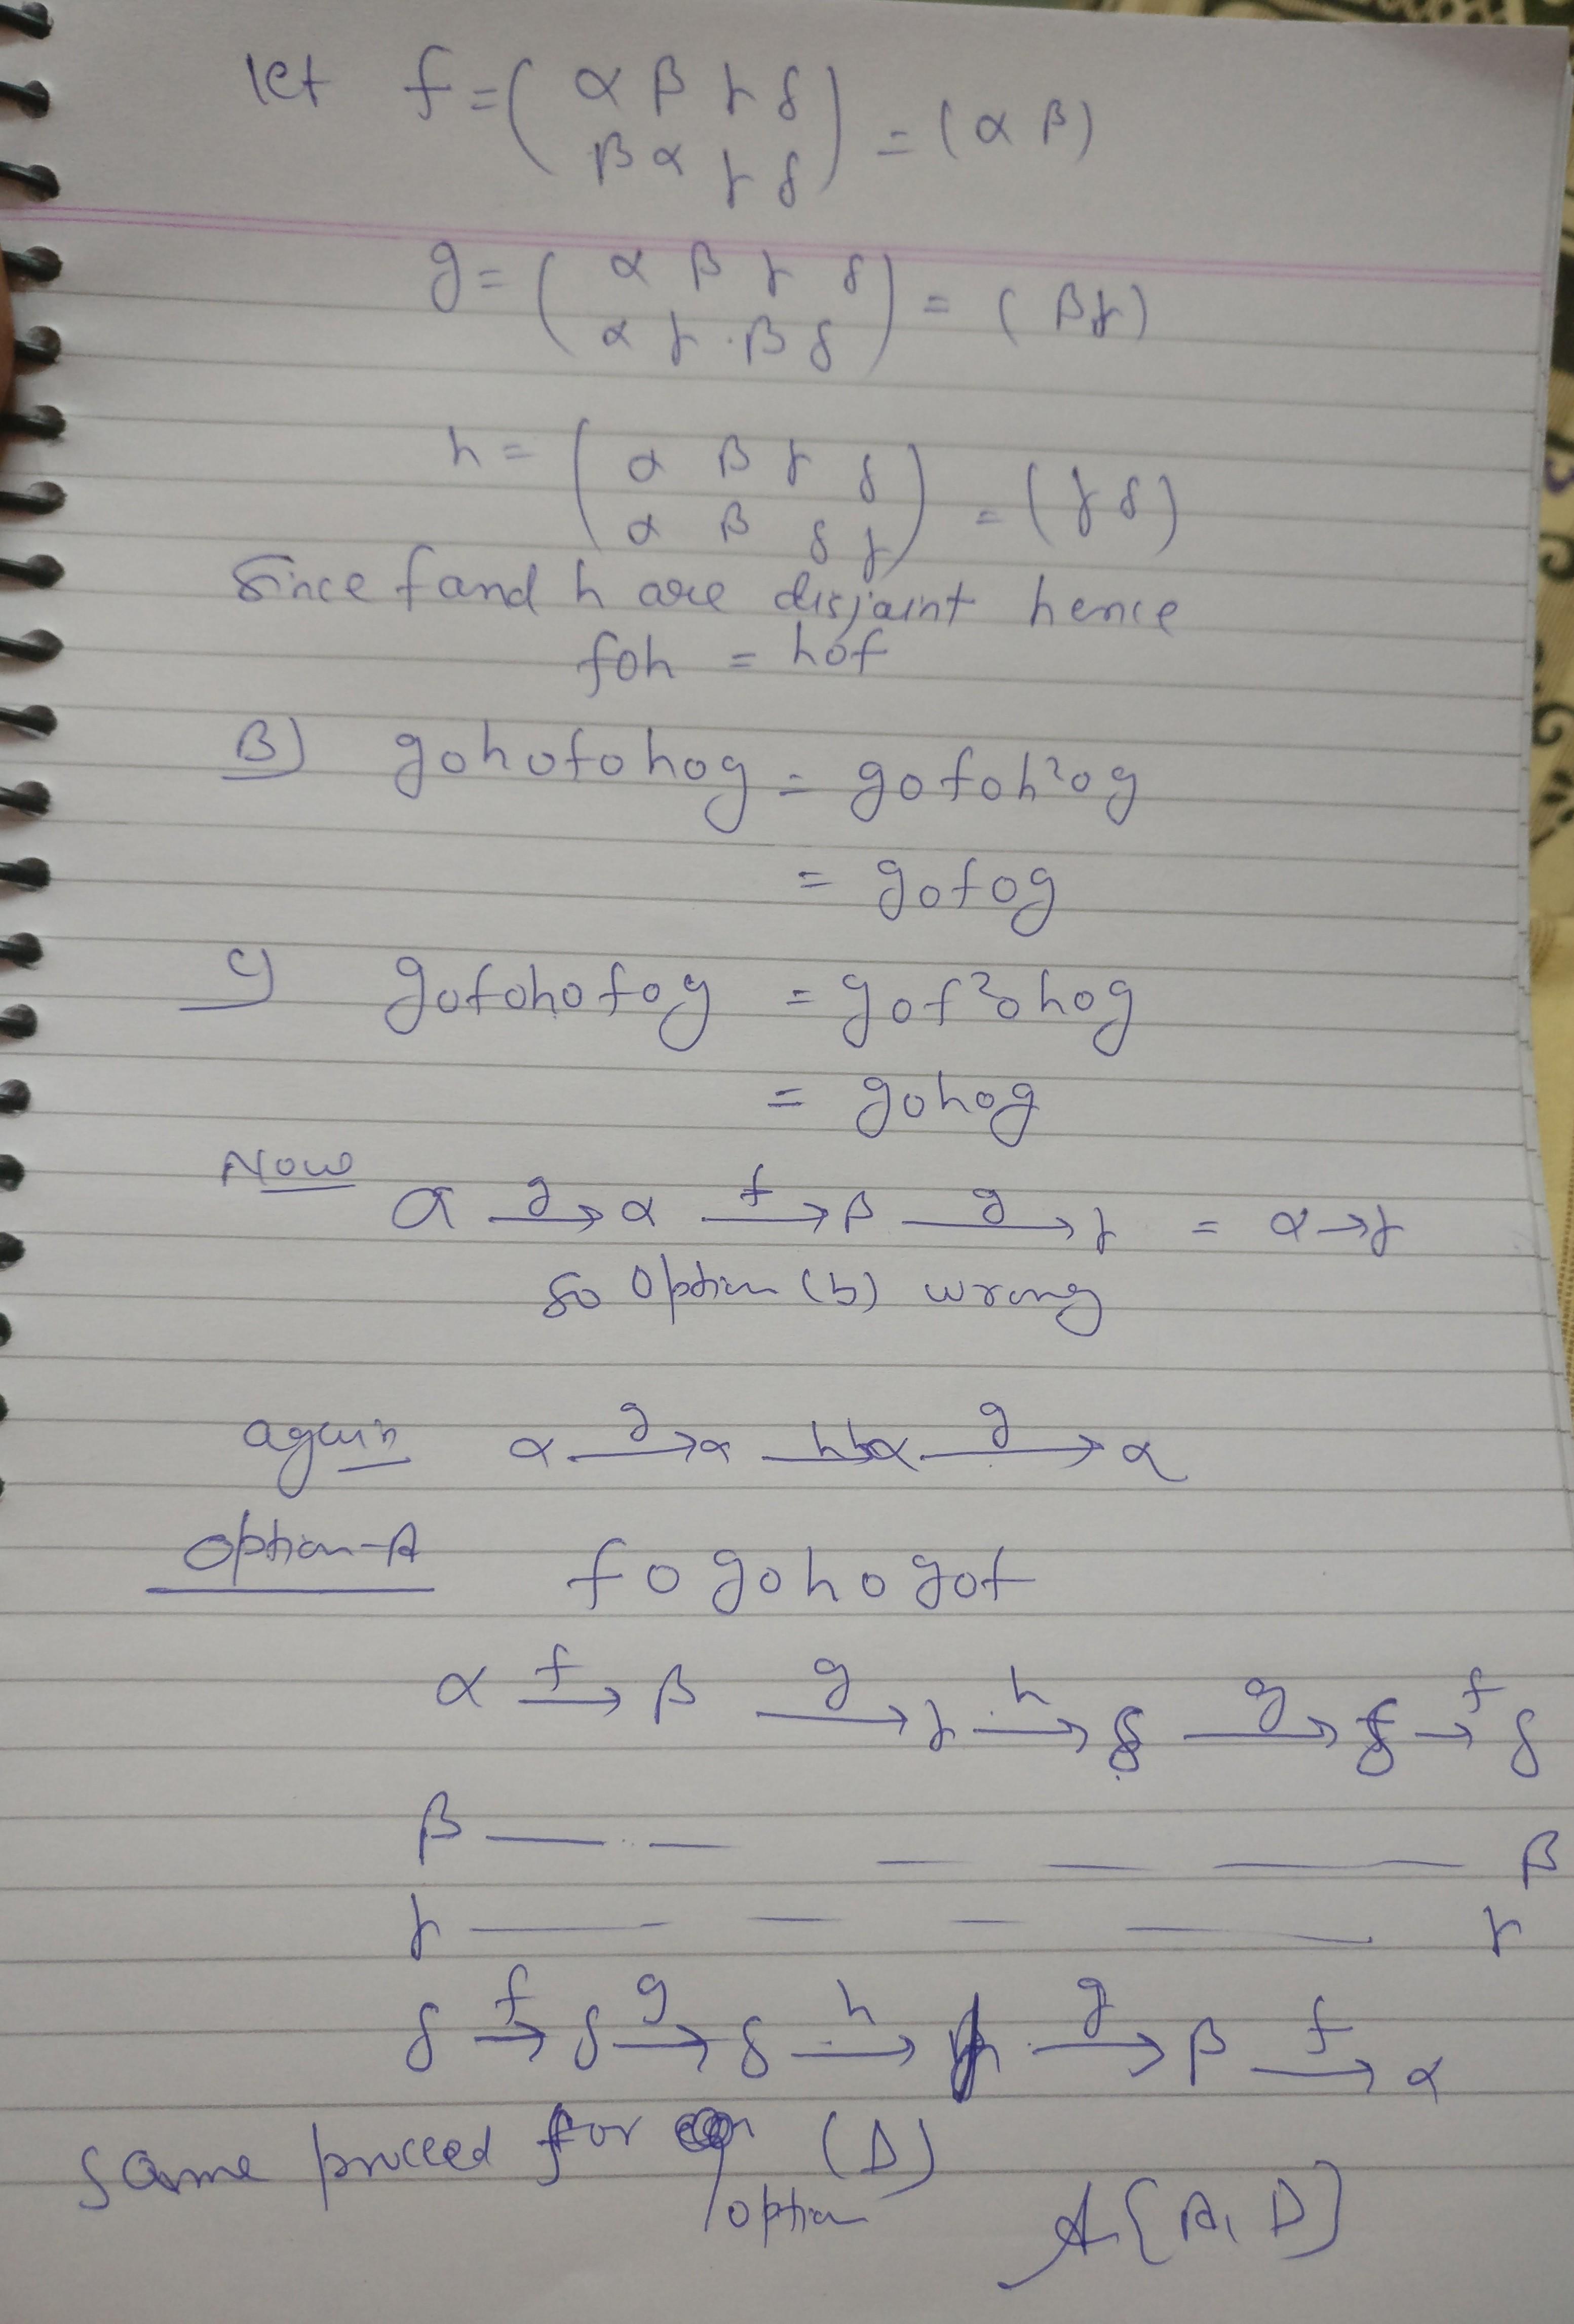 let f = ( α β γ δ
β α γ δ ) = (α β)
g = ( α β γ δ
α γ . β δ ) = ( β γ )
h = ( α β γ δ
α β δ γ ) = ( γ δ )
Since f and h are disjaint hence
foh = hof
B) gohofohog = gofoh²og
= gofog
C) gofohofog = gof²ohog
= gohog
Now α g→ α f→ β g→ γ = α → γ
so option (b) wrong
again α g→ α h→ α g→ α
option-A fogohogof
α f→ β g→ γ h→ δ g→ δ f→ δ
β — — — — — β
γ — — — — γ
δ f→ δ g→ δ h→ γ g→ β f→ α
Same proceed for option (D)
A {A, D}